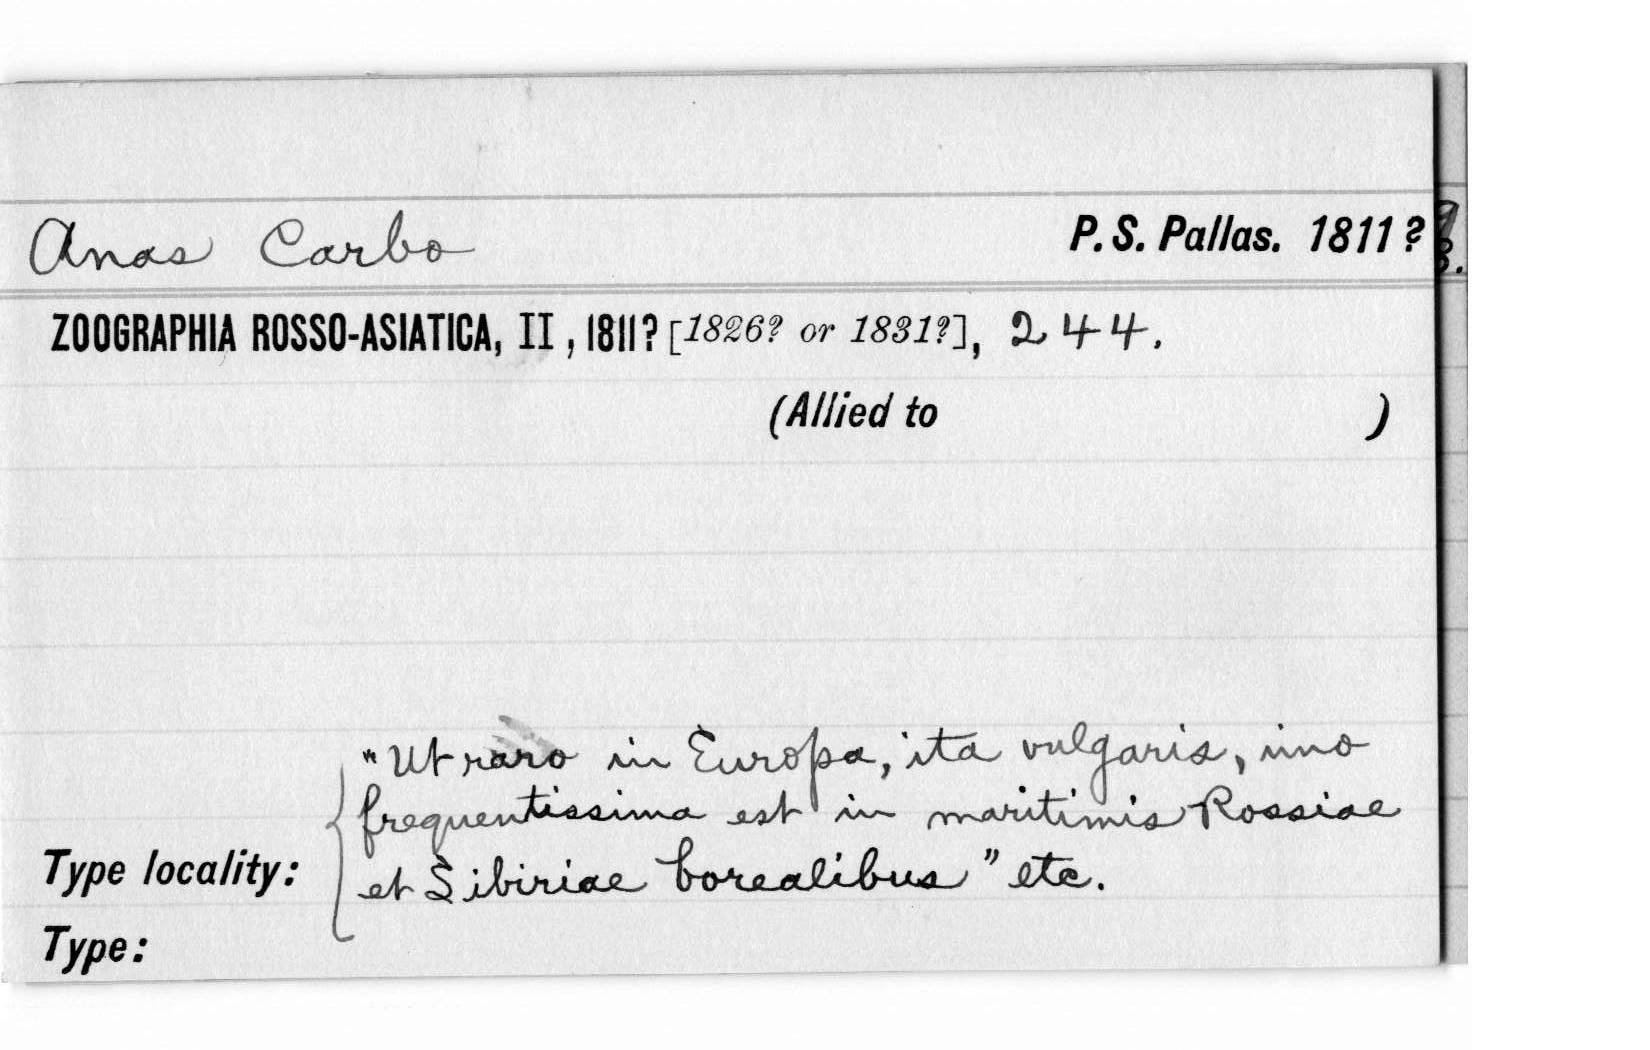 Anas Carbo P. S. Pallas. 1811?
ZOOGRAPHIA ROSSO-ASIATICA, II, 1811? [1826? or 1831?], 244.
(Allied to )
"Ut raro in Europa, ita vulgaris, imo
frequentissima est in maritimis Rossiae
Type locality: et Sibiriae borealibus" etc.
Type: